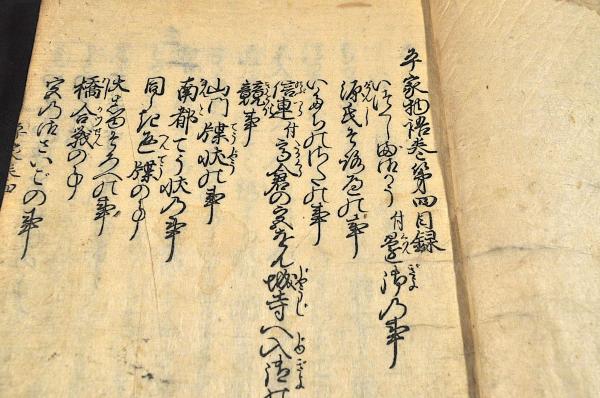 平家物語巻第四目録
いつくしま御かう 付 還御の事
源氏そろへの事
いたちのさたの事
信連 付 高倉の宮をん城寺へ入御の
競事
山門牒状の事
南都てう状の事
同しき返牒の事
そろへの事
橋合戦の事
宮の御さいごの事